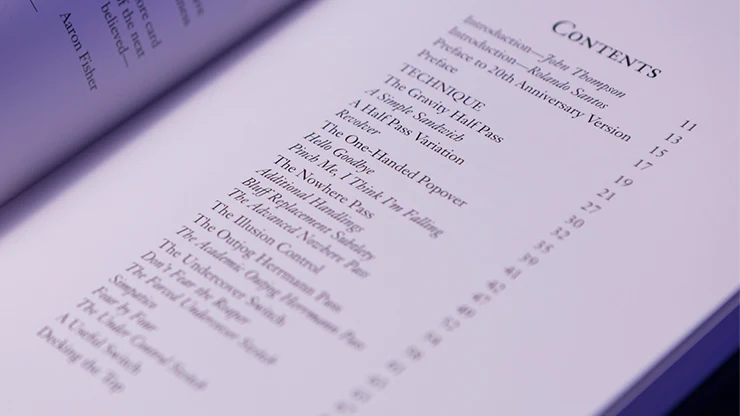 ore card
of the next
believed—
Aaron Fisher
CONTENTS
Introduction—John Thompson 11
Introduction—Rolando Santos 13
Preface to 20th Anniversary Version 15
Preface 17
TECHNIQUE 19
The Gravity Half Pass 21
A Simple Sandwich 27
A Half Pass Variation 30
Revolver 32
The One-Handed Popover 35
Hello Goodbye
Pinch Me, I Think I'm Falling
The Nowhere Pass
Additional Handlings
Bluff Replacement Subtlety
The Advanced Nowhere Pass
The Illusion Control
The Outjog Herrmann Pass
The Academic Outjog Herrmann Pass
The Undercover Switch
Don't Fear the Reaper
The Forced Undercover Switch
Sympatico
Four by Four
The Under Control Switch
A Useful Switch
Decking the Top